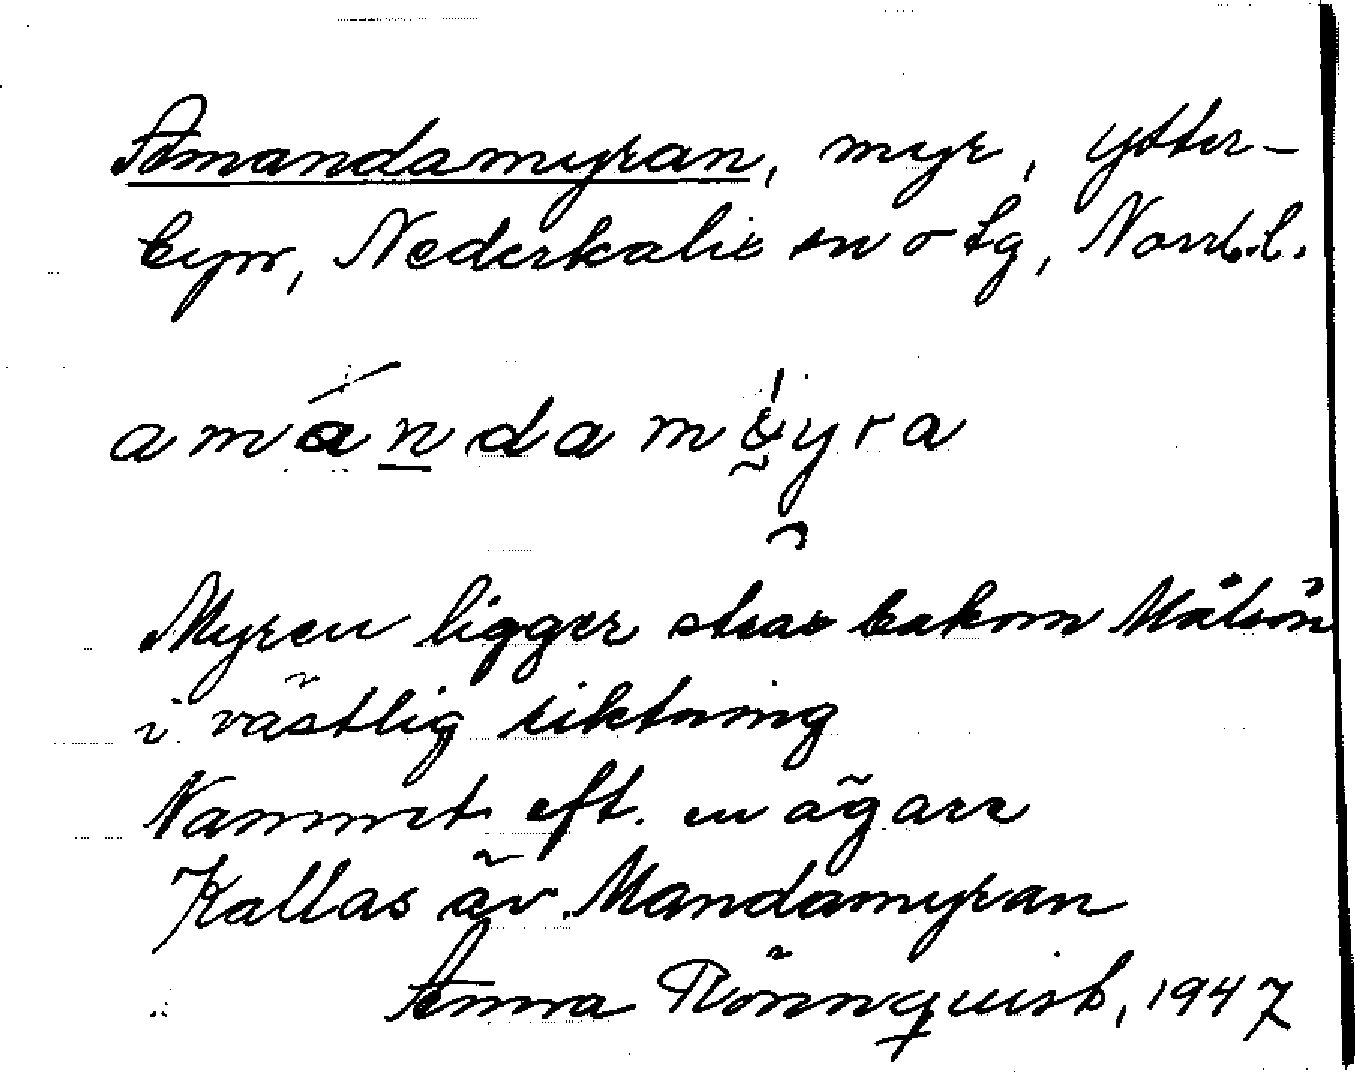 Amandamyran, myr, Ytter-
byn, Nederkalix sn o tg, Norrb.l.
amándamyra
Myren ligger strax bakom Målsön
i västlig riktning
Namnet eft. en ägare
Kallas äv. Mandamyran
Anna Rönnquist, 1947